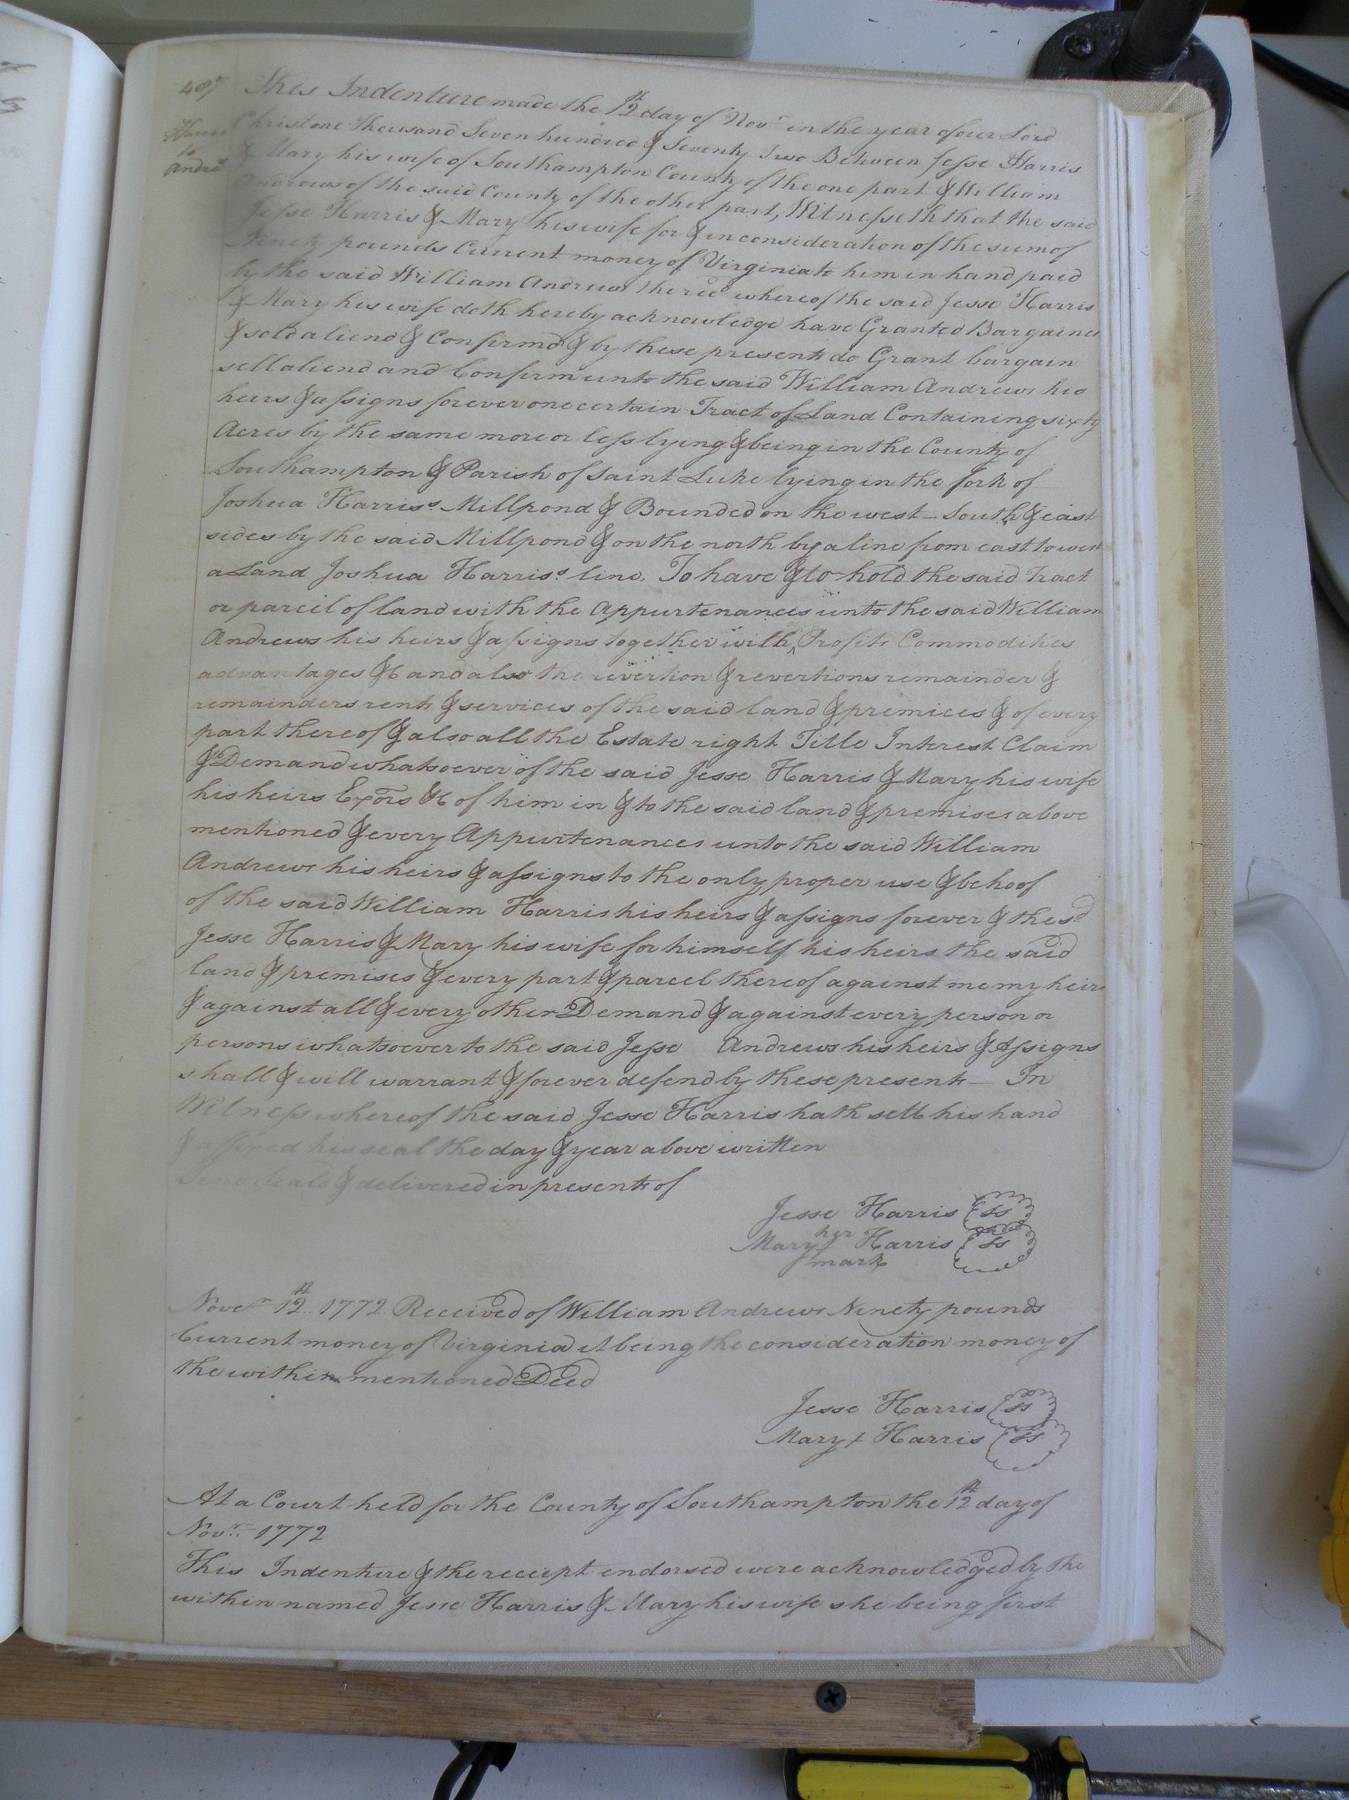 407
Harris
to
Andrews
This Indenture made the 12th day of Novr in the year of our Lord
Christ one Thousand Seven hundred & Seventy Two Between Jesse Harris
& Mary his wife of Southampton County of the one part & William
Andrews of the said County of the other part, Witnesseth that the said
Jesse Harris & Mary his wife for & in consideration of the sum of
Ninety pounds Current money of Virginia to him in hand paid
by the said William Andrews the rect whereof the said Jesse Harris
& Mary his wife doth hereby acknowledge have Granted Bargained
& sold aliend & Confirmd & by these presents do Grant bargain
sell aliend and Confirm unto the said William Andrews his
heirs & assigns forever one certain Tract of Land Containing sixty
Acres by the same more or less lying & being in the County of
Southampton & Parish of Saint Luke lying in the fork of
Joshua Harris's Millpond & Bounded on the west South & east
sides by the said Millpond & on the north by a line from east to west
a Land Joshua Harris's line. To have & to hold the said Tract
or parcil of land with the Appurtenances unto the said William
Andrews his heirs & assigns together with Profits Commodities
advantages &c and also the revertion & revertions remainder &
remainders rents & services of the said land & premices & of every
part thereof & also all the Estate right Title Interest Claim
& Demand whatsoever of the said Jesse Harris & Mary his wife
his heirs Exors &c of him in & to the said land & premises above
mentioned & every Appurtenances unto the said William
Andrews his heirs & assigns to the only proper use & behoof
of the said William Harris his heirs & assigns forever & the sd
Jesse Harris & Mary his wife for himself his heirs the said
land & premises & every part & parcel thereof against me my heirs
& against all & every other Demand & against every person or
persons whatsoever to the said Jesse Andrews his heirs & Assigns
shall & will warrant & forever defend by these presents In
Witness whereof the said Jesse Harris hath sett his hand
& affixed his seal the day & year above written
Seald & delivered in presents of
Jesse Harris SS
her
Mary + Harris SS
mark
Novr 12th 1772 Received of William Andrews Ninety pounds
Current money of Virginia it being the consideration money of
the within mentioned Deed
Jesse Harris SS
Mary + Harris SS
At a Court held for the County of Southampton the 12th day of
Novr 1772
This Indenture & the receipt endorsed were acknowledged by the
within named Jesse Harris & Mary his wife she being first